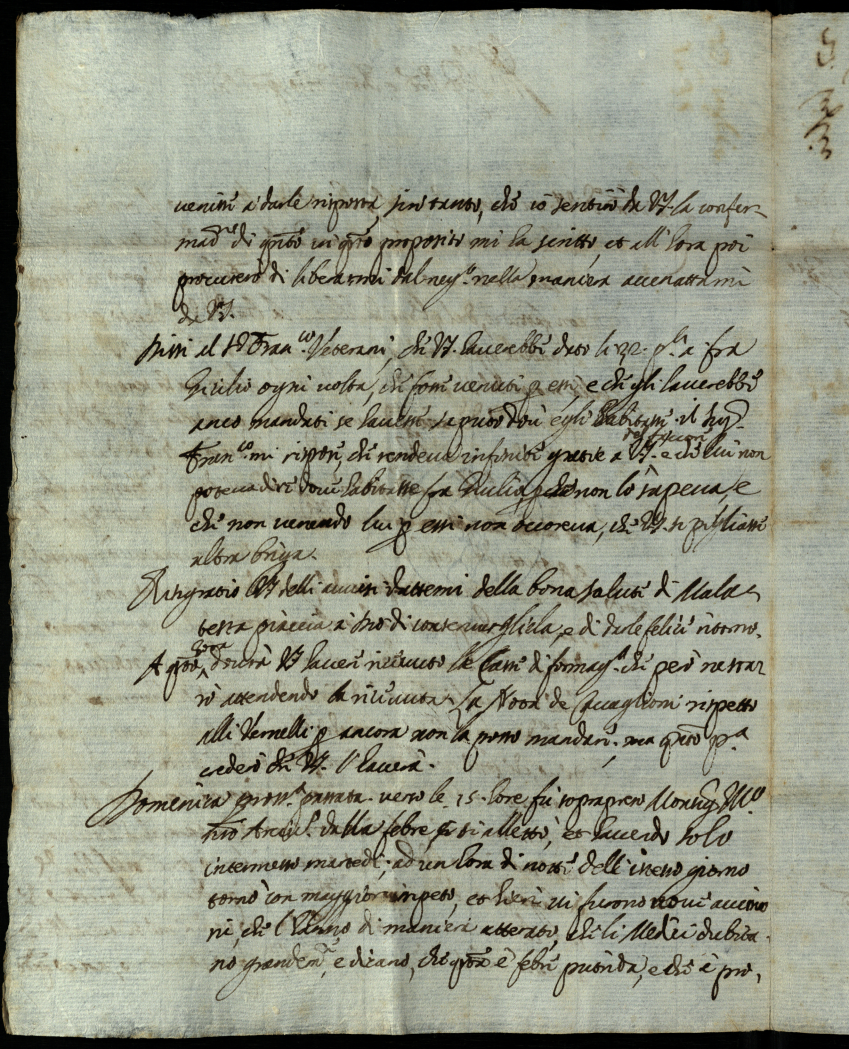 venissi à darle risposta, sin tanto, che io sentirò da VS. la confer-
mad.ne di q.nto in q.sto proposito mi ha scritto, et all'hora poi
procurerò di liberarmi dal neg.o nella maniera accenattami
da VS.
Dissi al S.r Fran.co Veterani, che VS. haverebbe dato li 32. p.li a fra
Giulio ogni volta, che fosse venuto p essi, e che gli haverebbe
anco mandati se havesse saputo dove egli habitasse. il Sig.r
Fran.co mi rispose, che rendeva infinite gratie a VS. e che lui non
poteva dire dove habitasse fra Giulio, non lo sapeva, e
che non venendo lui p essi non occoreva, che VS. si pigliasse
altra briga.
Ringratio VS delli avvisi dattemi della bona salute di Mala-
testa piaccia a Dio di conservargliela, e di darle felice ritorno.
A q.st hora dourà VS haver riceuuto le casse di formag.o che però restar
rò attendendo la riceuuta. La Nota de Quaglioni rispetto
alli Vernelli p ancora non la posso mandare, ma q.sto p.a
crederò che VS. l'haverà.
Domenica pross.a passata verso le 15. hore fù soprapreso Monsig.
n.ro Arciv.o dalla febre, si allettò, et havendo solo
intermesso martedì, ad un hora di notte dell'istesso giorno
tornò con maggior impeto, et hieri vi furono novi accidé
ni, che l'hanno di maniera atterato, che li Medici dubita-
no grandem.te, e dicano, che q.sta è febre putrida, e che è pro,